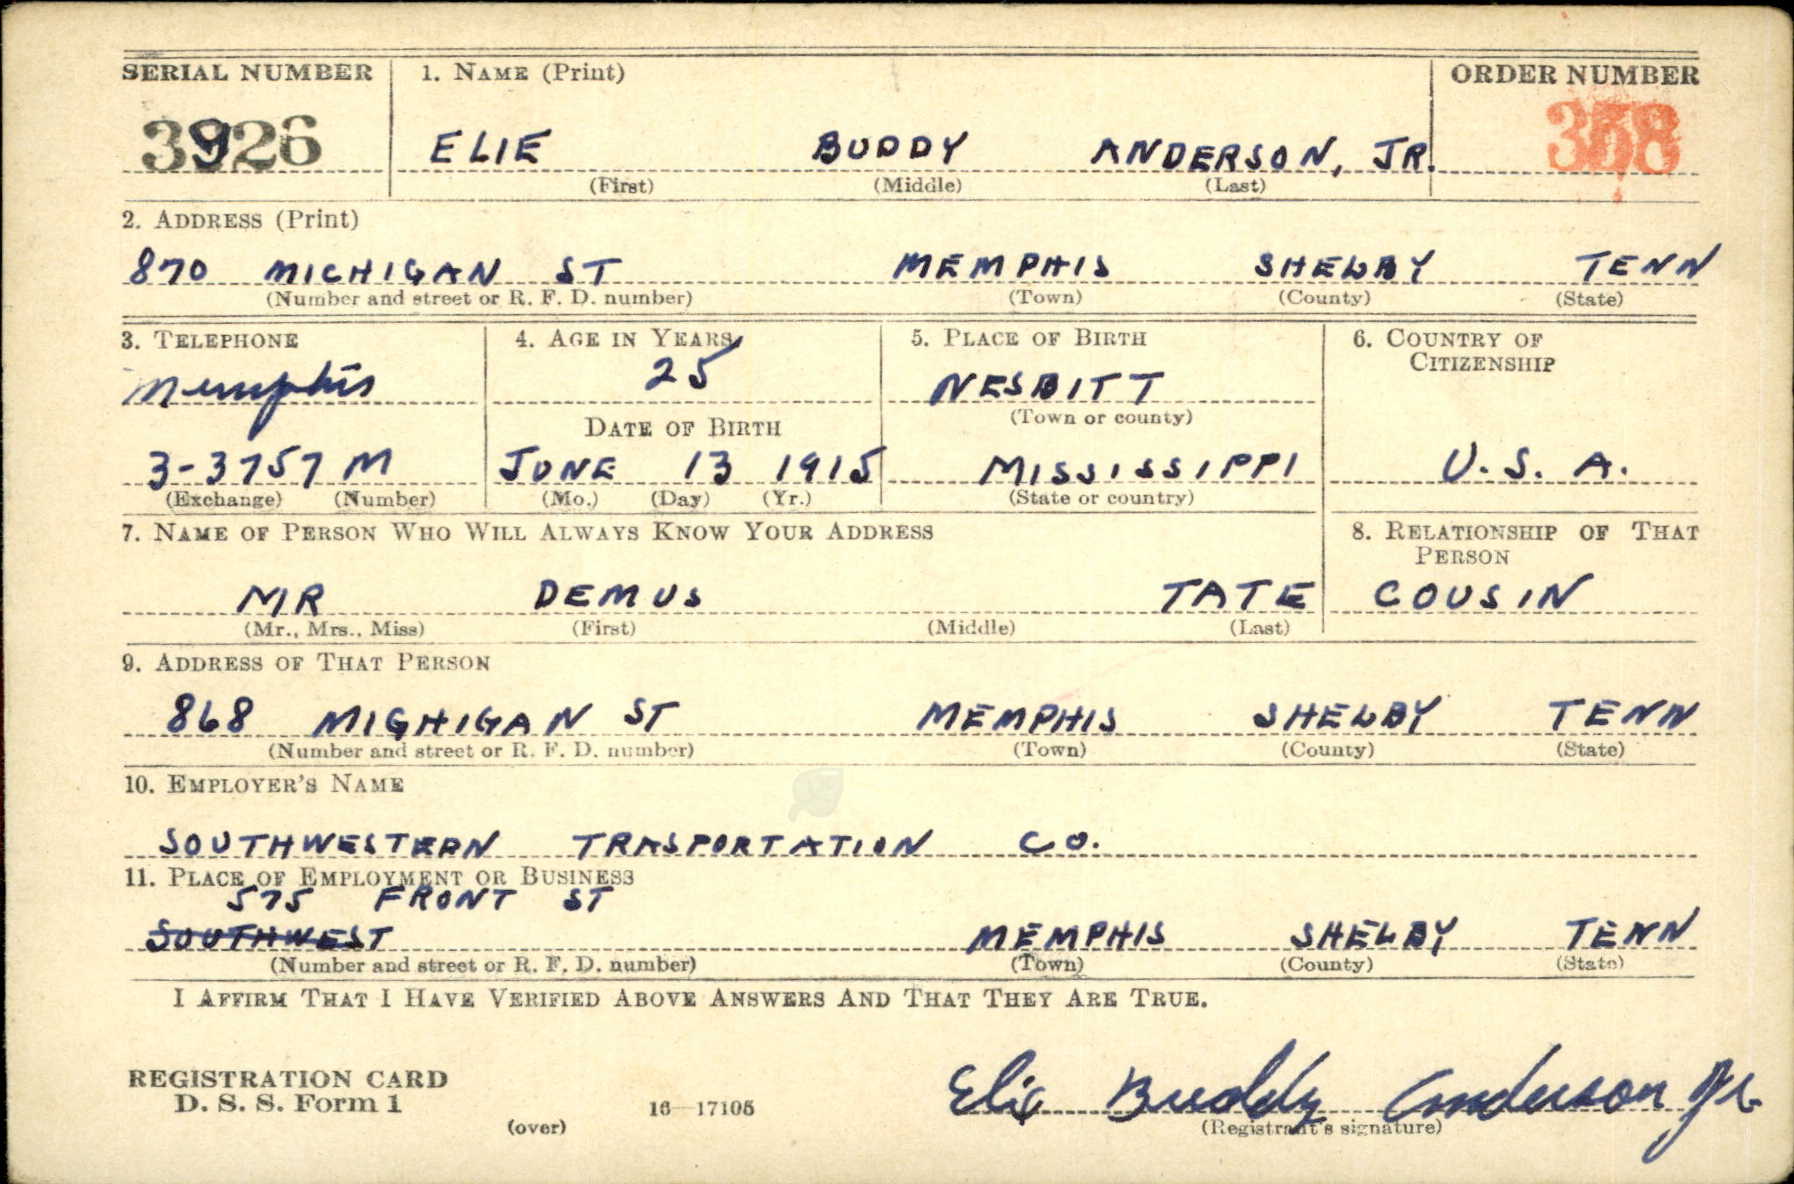 SERIAL NUMBER 1. NAME (Print) ORDER NUMBER
3926 ELIE BUDDY ANDERSON, JR. 358
(First) (Middle) (Last)
2. ADDRESS (Print)
870 MICHIGAN ST MEMPHIS SHELBY TENN
(Number and street or R. F. D. number) (Town) (County) (State)
3. TELEPHONE 4. AGE IN YEARS 5. PLACE OF BIRTH 6. COUNTRY OF
CITIZENSHIP
Memphis 25 NESBITT
DATE OF BIRTH (Town or county)
3-3757 M JUNE 13 1915 MISSISSIPPI U. S. A.
(Exchange) (Number) (Mo.) (Day) (Yr.) (State or country)
7. NAME OF PERSON WHO WILL ALWAYS KNOW YOUR ADDRESS 8. RELATIONSHIP OF THAT
PERSON
MR DEMUS TATE COUSIN
(Mr., Mrs., Miss) (First) (Middle) (Last)
9. ADDRESS OF THAT PERSON
868 MIGHIGAN ST MEMPHIS SHELBY TENN
(Number and street or R. F. D. number) (Town) (County) (State)
10. EMPLOYER'S NAME
SOUTHWESTERN TRASPORTATION CO.
11. PLACE OF EMPLOYMENT OR BUSINESS
575 FRONT ST
SOUTHWEST MEMPHIS SHELBY TENN
(Number and street or R. F. D. number) (Town) (County) (State)
I AFFIRM THAT I HAVE VERIFIED ABOVE ANSWERS AND THAT THEY ARE TRUE.
REGISTRATION CARD
D. S. S. Form 1 16—17105 Elie Buddy Anderson Jr
(over) (Registrant's signature)